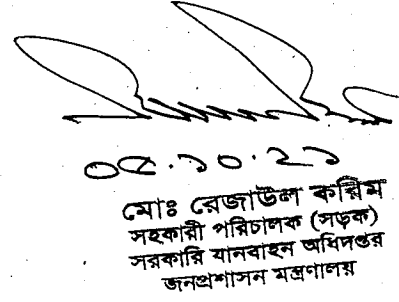 ০৫.১০.২১
মোঃ রেজাউল করিম
সহকারী পরিচালক (সড়ক)
সরকারি যানবাহন অধিদপ্তর
জনপ্রশাসন মন্ত্রণালয়